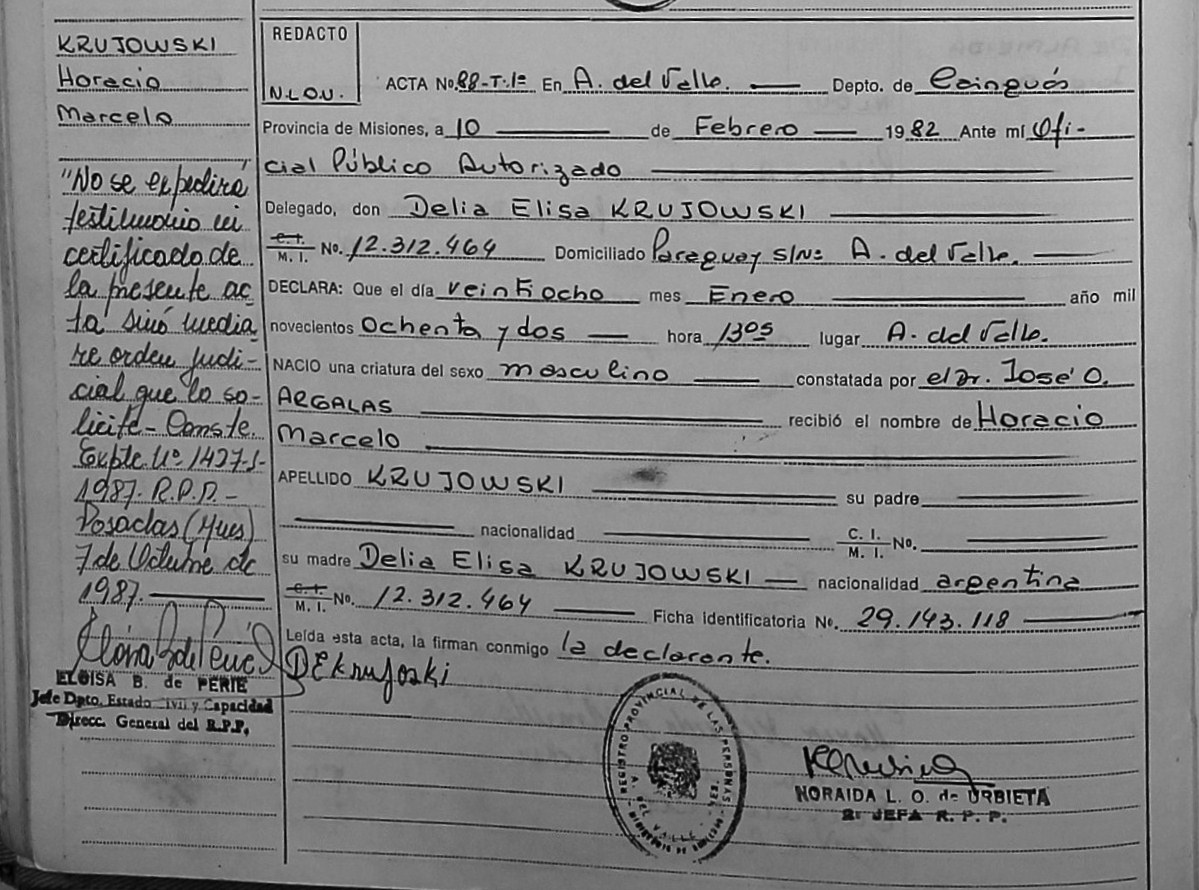 KRUJOWSKI
Horacio
Marcelo
"No se expedirá
testimonio ni
certificado de
la presente ac
ta sinó media
te orden judi-
cial que lo so-
licite- Conste.
Expte. Nº 1427-S-
1987. R.P.P.-
Posadas (Mnes)
7 de Octubre de
1987.
ELOISA B. de PERIE
Jefe Dpto. Estado Civil y Capacidad
Direcc. General del R.P.P.
REDACTO
N.L.O.U.
ACTA No. 88-T.1º En A. del Valle. Depto. de Cainguás
Provincia de Misiones, a 10 de Febrero 1982 Ante mí Ofi-
cial Público Autorizado
Delegado, don Delia Elisa KRUJOWSKI
C. I. M. I. No. 12.312.464 Domiciliado Paraguay s/Nº A. del Valle.
DECLARA: Que el día veintiocho mes Enero año mil
novecientos ochenta y dos hora 1305 lugar A. del Valle.
NACIO una criatura del sexo masculino constatada por el Dr. José O.
ARGALAS recibió el nombre de Horacio
Marcelo
APELLIDO KRUJOWSKI su padre
nacionalidad C. I. M. I. No.
su madre Delia Elisa KRUJOWSKI nacionalidad argentina
C. I. M. I. No. 12.312.464 Ficha identificatoria No. 29.143.118
Leída esta acta, la firman conmigo la declarante.
DEKrujoski
REGISTRO PROVINCIAL DE LAS PERSONAS
A. DEL VALLE
NORAIDA L. O. de URBIETA
JEFA R. P. P.